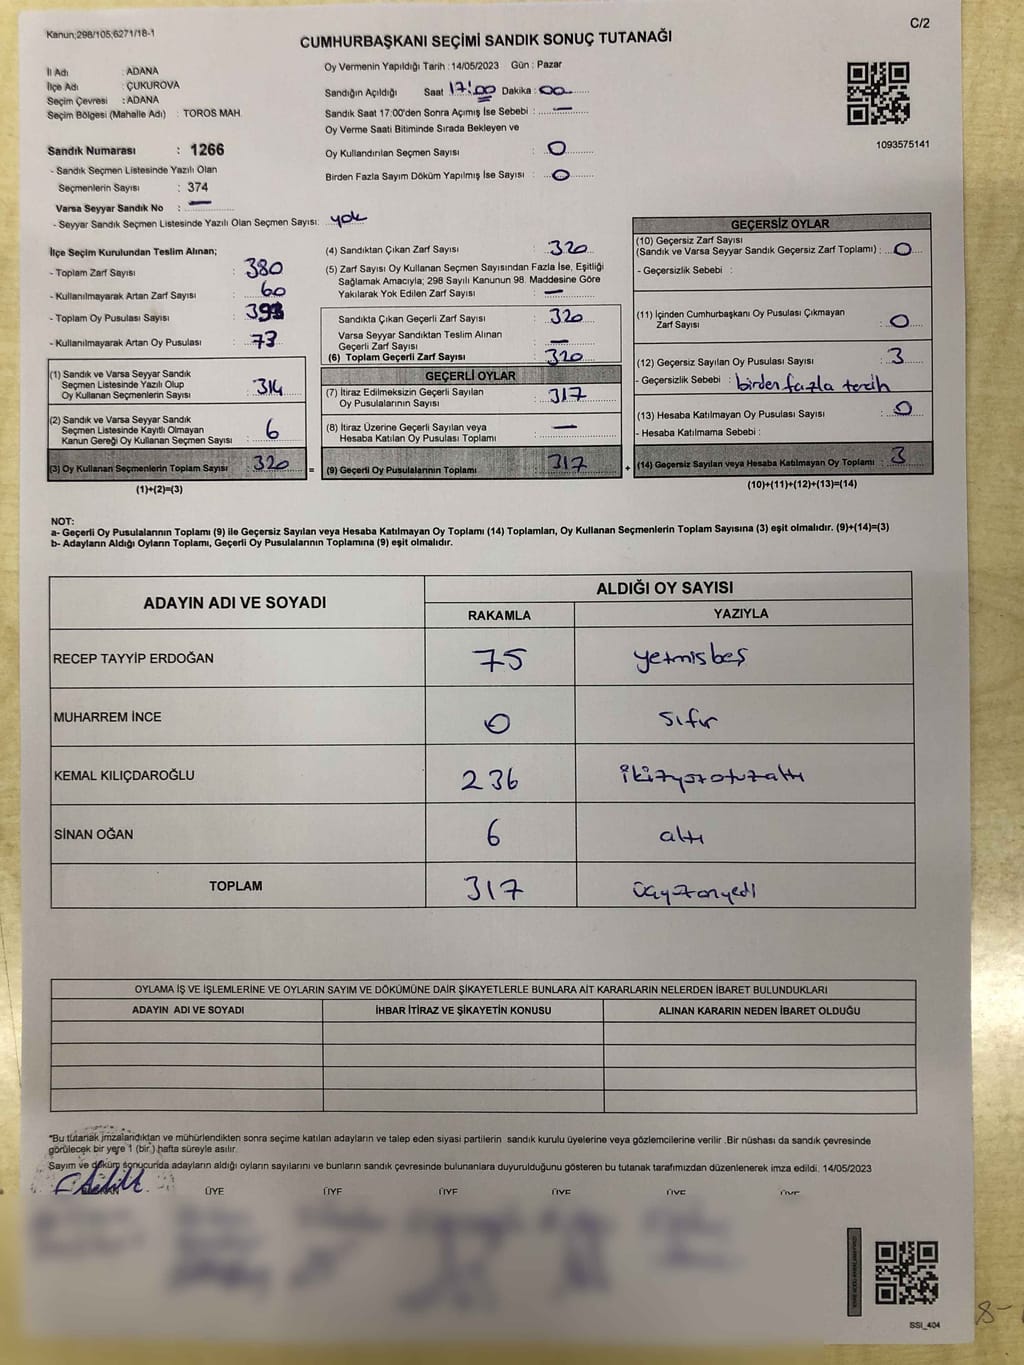 Kanun;298/105;6271/18-1
C/2
CUMHURBAŞKANI SEÇİMİ SANDIK SONUÇ TUTANAĞI
İl Adı : ADANA
İlçe Adı : ÇUKUROVA
Seçim Çevresi : ADANA
Seçim Bölgesi (Mahalle Adı) : TOROS MAH.
Sandık Numarası : 1266
- Sandık Seçmen Listesinde Yazılı Olan
Seçmenlerin Sayısı : 374
Varsa Seyyar Sandık No : —
- Seyyar Sandık Seçmen Listesinde Yazılı Olan Seçmen Sayısı: yok
Oy Vermenin Yapıldığı Tarih : 14/05/2023 Gün : Pazar
Sandığın Açıldığı Saat 17:00 Dakika : 00
Sandık Saat 17:00'den Sonra Açımış İse Sebebi : —
Oy Verme Saati Bitiminde Sırada Bekleyen ve
Oy Kullandırılan Seçmen Sayısı : 0
Birden Fazla Sayım Döküm Yapılmış İse Sayısı : 0
1093575141
İlçe Seçim Kurulundan Teslim Alınan;
- Toplam Zarf Sayısı : 380
- Kullanılmayarak Artan Zarf Sayısı : 60
- Toplam Oy Pusulası Sayısı :
- Kullanılmayarak Artan Oy Pusulası : 73
(1) Sandık ve Varsa Seyyar Sandık
Seçmen Listesinde Yazılı Olup
Oy Kullanan Seçmenlerin Sayısı : 314
(2) Sandık ve Varsa Seyyar Sandık
Seçmen Listesinde Kayıtlı Olmayan
Kanun Gereği Oy Kullanan Seçmen Sayısı : 6
(3) Oy Kullanan Seçmenlerin Toplam Sayısı : 320
(1)+(2)=(3)
(4) Sandıktan Çıkan Zarf Sayısı : 320
(5) Zarf Sayısı Oy Kullanan Seçmen Sayısından Fazla İse, Eşitliği
Sağlamak Amacıyla; 298 Sayılı Kanunun 98. Maddesine Göre
Yakılarak Yok Edilen Zarf Sayısı : —
Sandıkta Çıkan Geçerli Zarf Sayısı : 320
Varsa Seyyar Sandıktan Teslim Alınan
Geçerli Zarf Sayısı : —
(6) Toplam Geçerli Zarf Sayısı : 320
GEÇERLİ OYLAR
(7) İtiraz Edilmeksizin Geçerli Sayılan
Oy Pusulalarının Sayısı : 317
(8) İtiraz Üzerine Geçerli Sayılan veya
Hesaba Katılan Oy Pusulası Toplamı : —
= (9) Geçerli Oy Pusulalarının Toplamı : 317
GEÇERSİZ OYLAR
(10) Geçersiz Zarf Sayısı
(Sandık ve Varsa Seyyar Sandık Geçersiz Zarf Toplamı) : 0
- Geçersizlik Sebebi :
(11) İçinden Cumhurbaşkanı Oy Pusulası Çıkmayan
Zarf Sayısı : 0
(12) Geçersiz Sayılan Oy Pusulası Sayısı : 3
- Geçersizlik Sebebi : birden fazla tercih
(13) Hesaba Katılmayan Oy Pusulası Sayısı : 0
- Hesaba Katılmama Sebebi :
+ (14) Geçersiz Sayılan veya Hesaba Katılmayan Oy Toplamı : 3
(10)+(11)+(12)+(13)=(14)
NOT:
a- Geçerli Oy Pusulalarının Toplamı (9) ile Geçersiz Sayılan veya Hesaba Katılmayan Oy Toplamı (14) Toplamları, Oy Kullanan Seçmenlerin Toplam Sayısına (3) eşit olmalıdır. (9)+(14)=(3)
b- Adayların Aldığı Oyların Toplamı, Geçerli Oy Pusulalarının Toplamına (9) eşit olmalıdır.
ADAYIN ADI VE SOYADI ALDIĞI OY SAYISI
RAKAMLA YAZIYLA
RECEP TAYYİP ERDOĞAN 75 yetmişbeş
MUHARREM İNCE 0 sıfır
KEMAL KILIÇDAROĞLU 236 ikiyüzotuzaltı
SİNAN OĞAN 6 altı
TOPLAM 317 üçyüzonyedi
OYLAMA İŞ VE İŞLEMLERİNE VE OYLARIN SAYIM VE DÖKÜMÜNE DAİR ŞİKAYETLERLE BUNLARA AİT KARARLARIN NELERDEN İBARET BULUNDUKLARI
ADAYIN ADI VE SOYADI İHBAR İTİRAZ VE ŞİKAYETİN KONUSU ALINAN KARARIN NEDEN İBARET OLDUĞU
*Bu tutanak imzalandıktan ve mühürlendikten sonra seçime katılan adayların ve talep eden siyasi partilerin sandık kurulu üyelerine veya gözlemcilerine verilir. Bir nüshası da sandık çevresinde
görülecek bir yere 1 (bir) hafta süreyle asılır.
Sayım ve döküm sonucunda adayların aldığı oyların sayılarını ve bunların sandık çevresinde bulunanlara duyurulduğunu gösteren bu tutanak tarafımızdan düzenlenerek imza edildi. 14/05/2023
ÜYE ÜYE ÜYE ÜYE ÜYE ÜYE
SSI_404